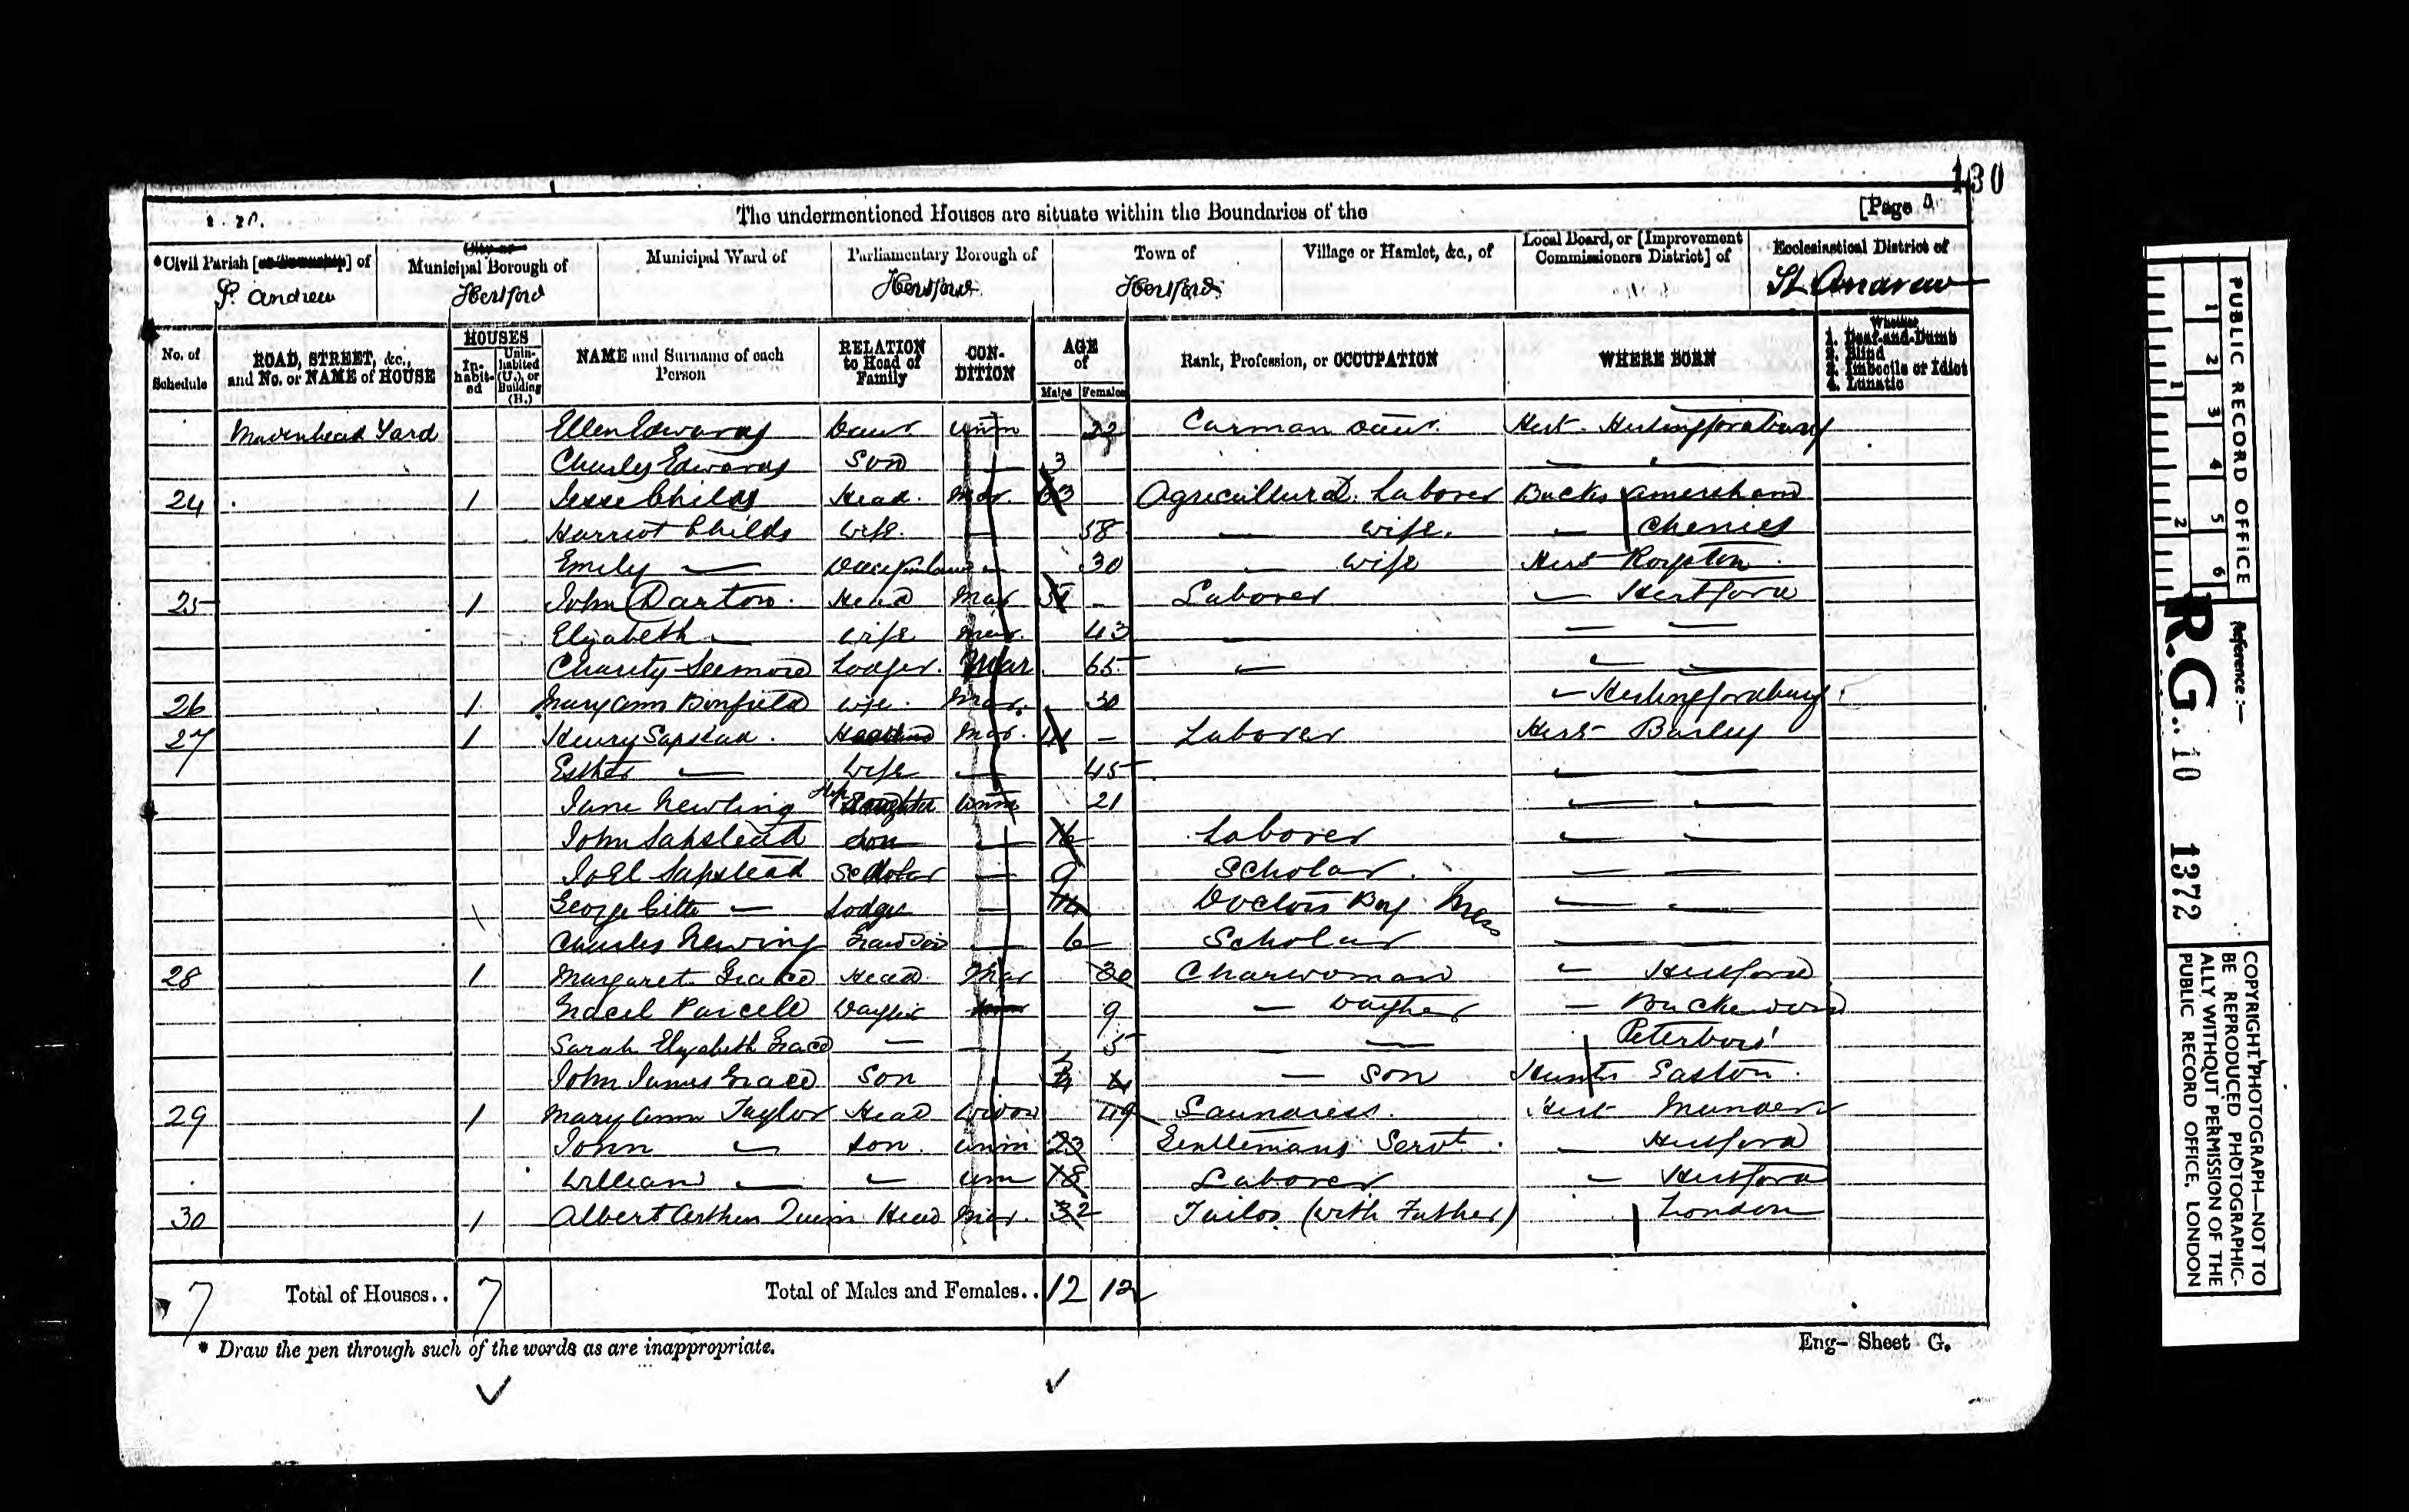 130
The undermentioned Houses are situate within the Boundaries of the
[Page
*Civil Parish [or Township] of
City or
Municipal Borough of
Municipal Ward of
Parliamentary Borough of
Town of
Village or Hamlet, &c., of
Local Board, or [Improvement
Commissioners District] of
Ecclesiastical District of
St. Andrew
Hertford
Hertford
Hertford
St Andrew
No. of
Schedule
ROAD, STREET, &c.,
and No. or NAME of HOUSE
HOUSES
In-
habit-
ed
Unin-
habited
(U.), or
Building
(B.)
NAME and Surname of each
Person
RELATION
to Head of
Family
CON-
DITION
AGE
of
Males Females
Rank, Profession, or OCCUPATION
WHERE BORN
Whether
1. Deaf-and-Dumb
2. Blind
3. Imbecile or Idiot
4. Lunatic
Yard Ellen Edwards Unm 22 Carman Hert Hertingfordbury
Charles Edwards Son 3
24 1 Jesse Childs Head Mar. 63 Agricultural Laborer Bucks Amersham
Harriot Childs Wife 58 — Wife — Chenies
Emily — 30 Wife Hert Royston
25 1 John Darton Head Mar Laborer — Hertford
Elizabeth — Wife Mar. 43 — — —
Charity Seemore Lodger Mar 65 — — —
26 1 Mary Ann Bonfield Wife Mar. 30 — Hertingfordbury
27 1 Henry Sapstead Head Mar. — Laborer Hert Barley
Esther — Wife — 45 — —
Jane Newling Step Daughter Unm 21 — —
John Sapstead Son — 16 Laborer — —
Joel Sapstead Scholar — 9 Scholar — —
George — Lodger — 14 Doctors Boy — —
Charles Newing Grandson — 6 Scholar — —
28 1 Margaret Grace Head Mar 30 Charwoman — Hertford
Purcell 9 —
Sarah Elizabeth Grace — — 5 — — Peterboro'
John James Grace Son — Son Hunts Easton
29 1 Mary Ann Taylor Head Widow 49 Laundress Hert Munden
John — Son Unm 23 Gentlemans Servt. — Hertford
William — — Unm 18 Laborer — Hertford
30 1 Albert Arthur Quinn Head Mar. 32 Tailor (with Father) London
7 Total of Houses.. 7 Total of Males and Females.. 12 12
* Draw the pen through such of the words as are inappropriate.
Eng- Sheet G.
PUBLIC RECORD OFFICE
1 2 3 4 5 6
1 2
Reference:—
R.G. 10 1372
COPYRIGHT PHOTOGRAPH—NOT TO
BE REPRODUCED PHOTOGRAPHIC-
ALLY WITHOUT PERMISSION OF THE
PUBLIC RECORD OFFICE, LONDON